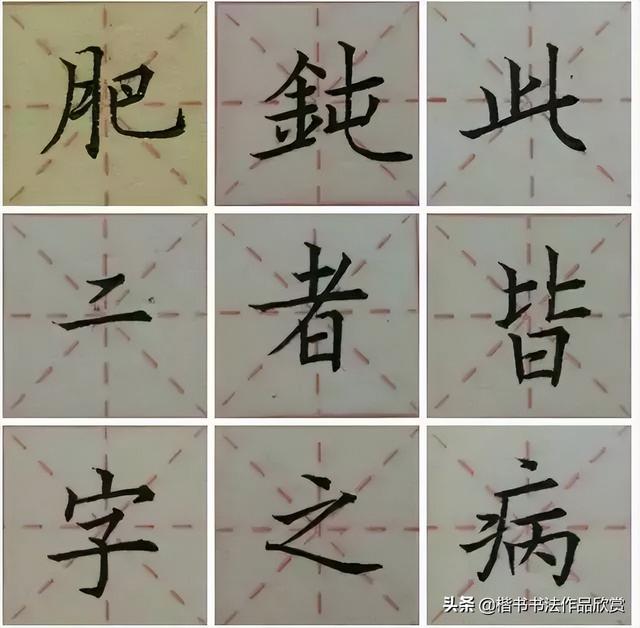 肥鈍此
二者皆
字之病
头条 @楷书书法作品欣赏